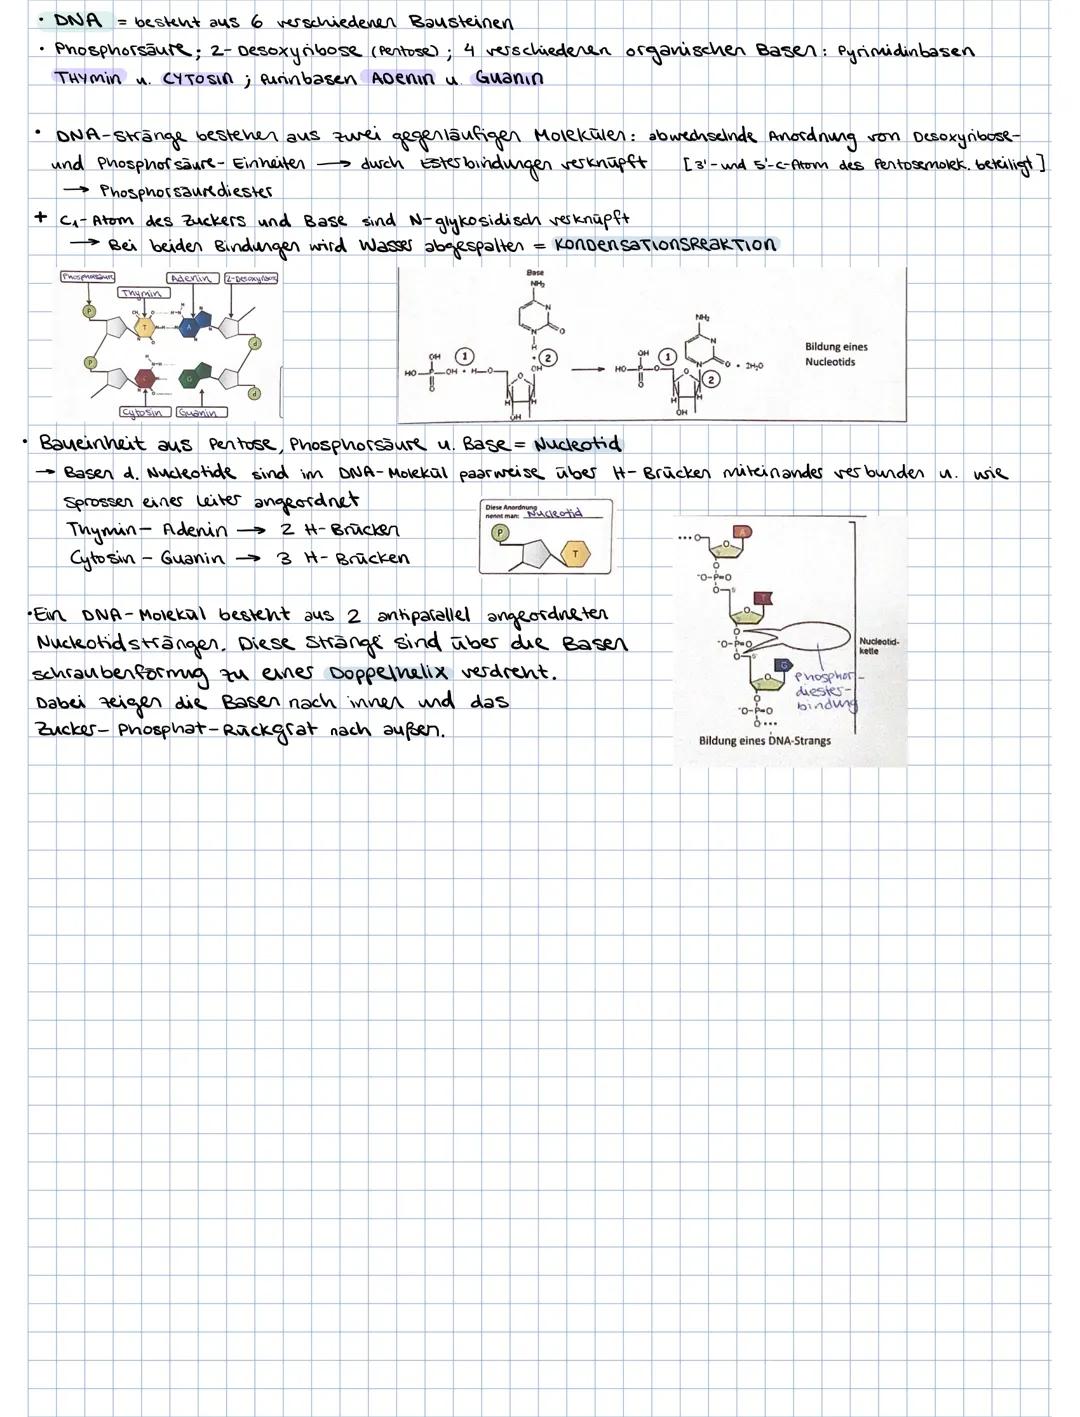 · DNA = besteht aus 6 verschiedenen Bausteinen
· Phosphorsäure; 2-Desoxyribose (Pentose); 4 verschiedenen organischen Basen: Pyrimidinbasen
THYmin u. CYTOSIN ; Purinbasen ADENIN u. GUANIN
· DNA-Stränge bestehen aus zwei gegenläufigen Molekülen: abwechselnde Anordnung von Desoxyribose-
und Phosphorsäure-Einheiten → durch Esterbindungen verknüpft [3'- und 5'-C-Atom des Pentosemolek. beteiligt]
→ Phosphorsäurediester
+ C₁-Atom des Zuckers und Base sind N-glykosidisch verknüpft
→ Bei beiden Bindungen wird Wasser abgespalten = KONDENSATIONSREAKTION
Phosphorsäure
Adenin
2-Desoxyribose
Thymin
P
T
A
d
P
C
G
d
Cytosin
Guanin
Base
NH₂
N
N
O
H
OH
1
2
HO—P—OH + H—O
O
O
H
H
OH
→
NH₂
N
N
O
OH
1
2
HO—P—O
O
O
H
H
OH
+ 2H₂O
Bildung eines
Nucleotids
· Baueinheit aus Pentose, Phosphorsäure u. Base = Nucleotid
→ Basen d. Nucleotide sind im DNA-Molekül paarweise über H-Brücken miteinander verbunden u. wie
Sprossen einer Leiter angeordnet
Thymin - Adenin → 2 H-Brücken
Cytosin - Guanin → 3 H-Brücken
Diese Anordnung
nennt man: Nucleotid
P
T
· Ein DNA-Molekül besteht aus 2 antiparallel angeordneten
Nucleotidsträngen. Diese Stränge sind über die Basen
schraubenförmig zu einer Doppelhelix verdreht.
Dabei zeigen die Basen nach innen und das
Zucker-Phosphat-Rückgrat nach außen.
A
···O
O
O
⁻O-P=O
O
T
O
O
⁻O-P=O
O
G
O
O
⁻O-P=O
O···
Nucleotid-
kette
Phosphor-
diester-
bindung
Bildung eines DNA-Strangs